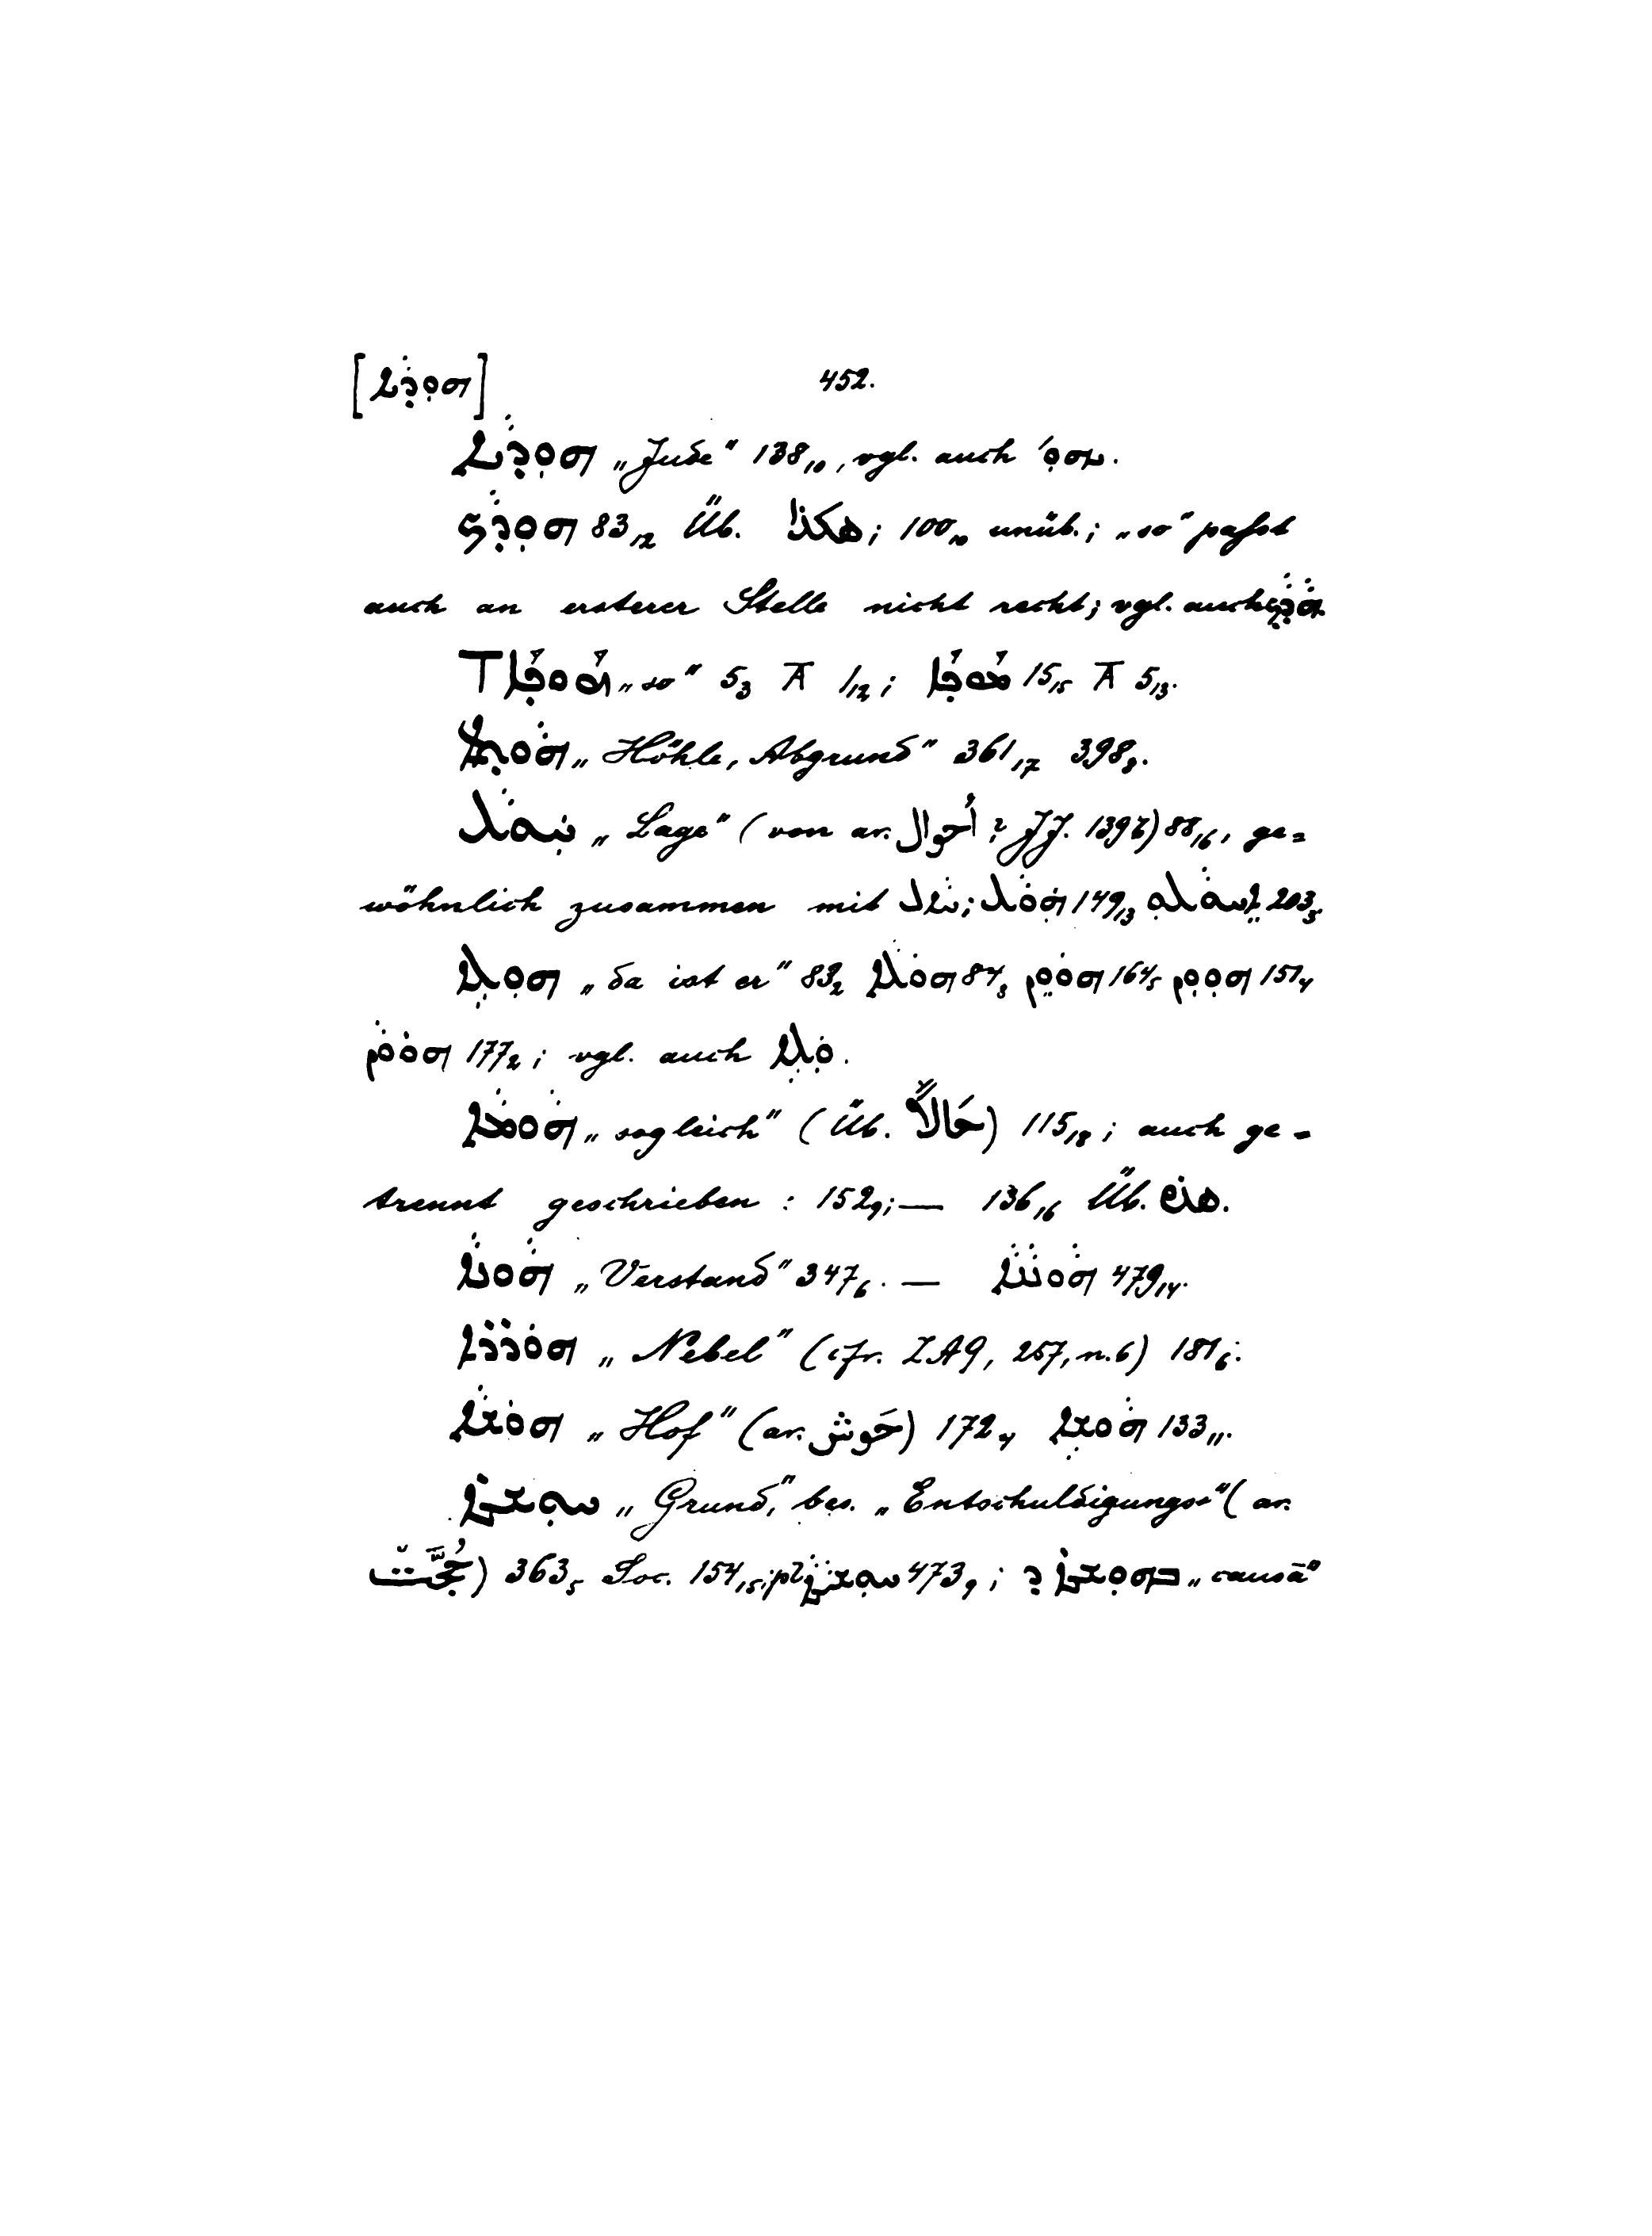 [ܗܘܼܕ݂ܵܝܐ] 452.
ܗܘܼܕ݂ܵܝܐ „Jude“ 138₁₀, vgl. auch ܝܗܘܼ'.
83₁₂ Üb. هكذا; 100₁₀ unüb.; „so“ paſst
auch an ersterer Stelle nicht recht; vgl. auch
T „so“ 5₃ Ā 1₁₂; 15₁₅ Ā 5₁₃.
„Höhle, Abgrund“ 361₁₇ 398₈.
„Lage“ (von ar. أحوال? JJ. 139b) 88₁₆, ge=
wöhnlich zusammen mit 149₁₃ 203₅
ܗܘܼܠܹܐ „da ist er“ 83₂ ܗܘܿܠܵܐ 84₈ 164₅ 151₄
177₂; vgl. auch ܘܿܠܹܐ.
„sogleich“ (Üb. حَالاً) 115₁₈; auch ge-
trennt geschrieben : 152₉; — 136₁₆ Üb. هذه.
ܗܵܘܢܵܐ „Verstand“ 347₆. — 479₁₄.
„Nebel“ (cfr. ZA9, 257, n. 6) 181₆.
ܗܘܿܫܵܐ „Hof“ (ar. حَوش) 172₄ ܗܵܘܫܹܐ 133₁₁.
„Grund,“ bes. „Entschuldigungs-“ (ar.
حُجَّت) 363₅ Soc. 154₁₅; pl 473₉; „causā“